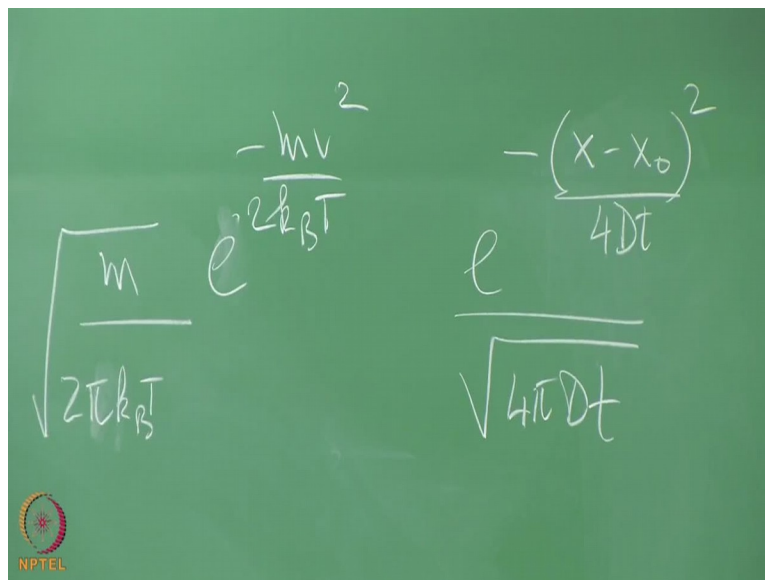 √(m/(2πk_BT)) e^(-mv²/(2k_BT))
e^(-(x-x₀)²/(4Dt)) / √(4πDt)
NPTEL